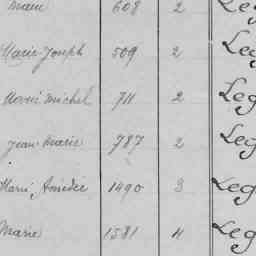 Marie 608 2 Leg
Marie Joseph 509 2 Leg
Michel 711 2 Leg
Jean Marie 787 2 Leg
Marie, Amédée 1490 3 Leg
Marie 1581 4 Leg